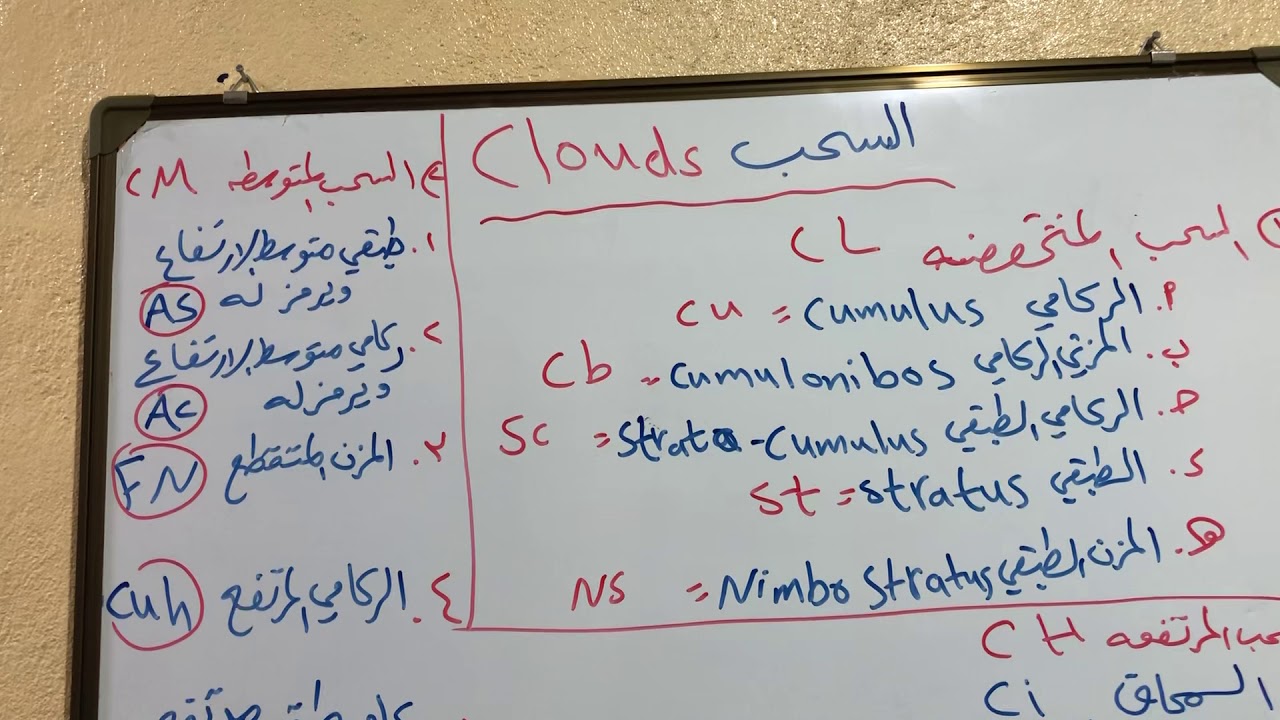 Clouds السحب
السحب المنخفضه CL
م. الركامي Cumulus = Cu
ب. المزني الركامي Cumulonibos = Cb
ح. الركامي الطبقي Strato-Cumulus = Sc
د. الطبقي Stratus = St
هـ. المزن الطبقي Nimbo Stratus = NS
السحب المتوسطه CM
١. طبقي متوسط الارتفاع
ويرمز له AS
٢. ركامي متوسط الارتفاع
ويرمز له AC
٣. المزن المتقطع FN
٤. الركامي المرتفع Cuh
المرتفعه CH
السمحاق Ci